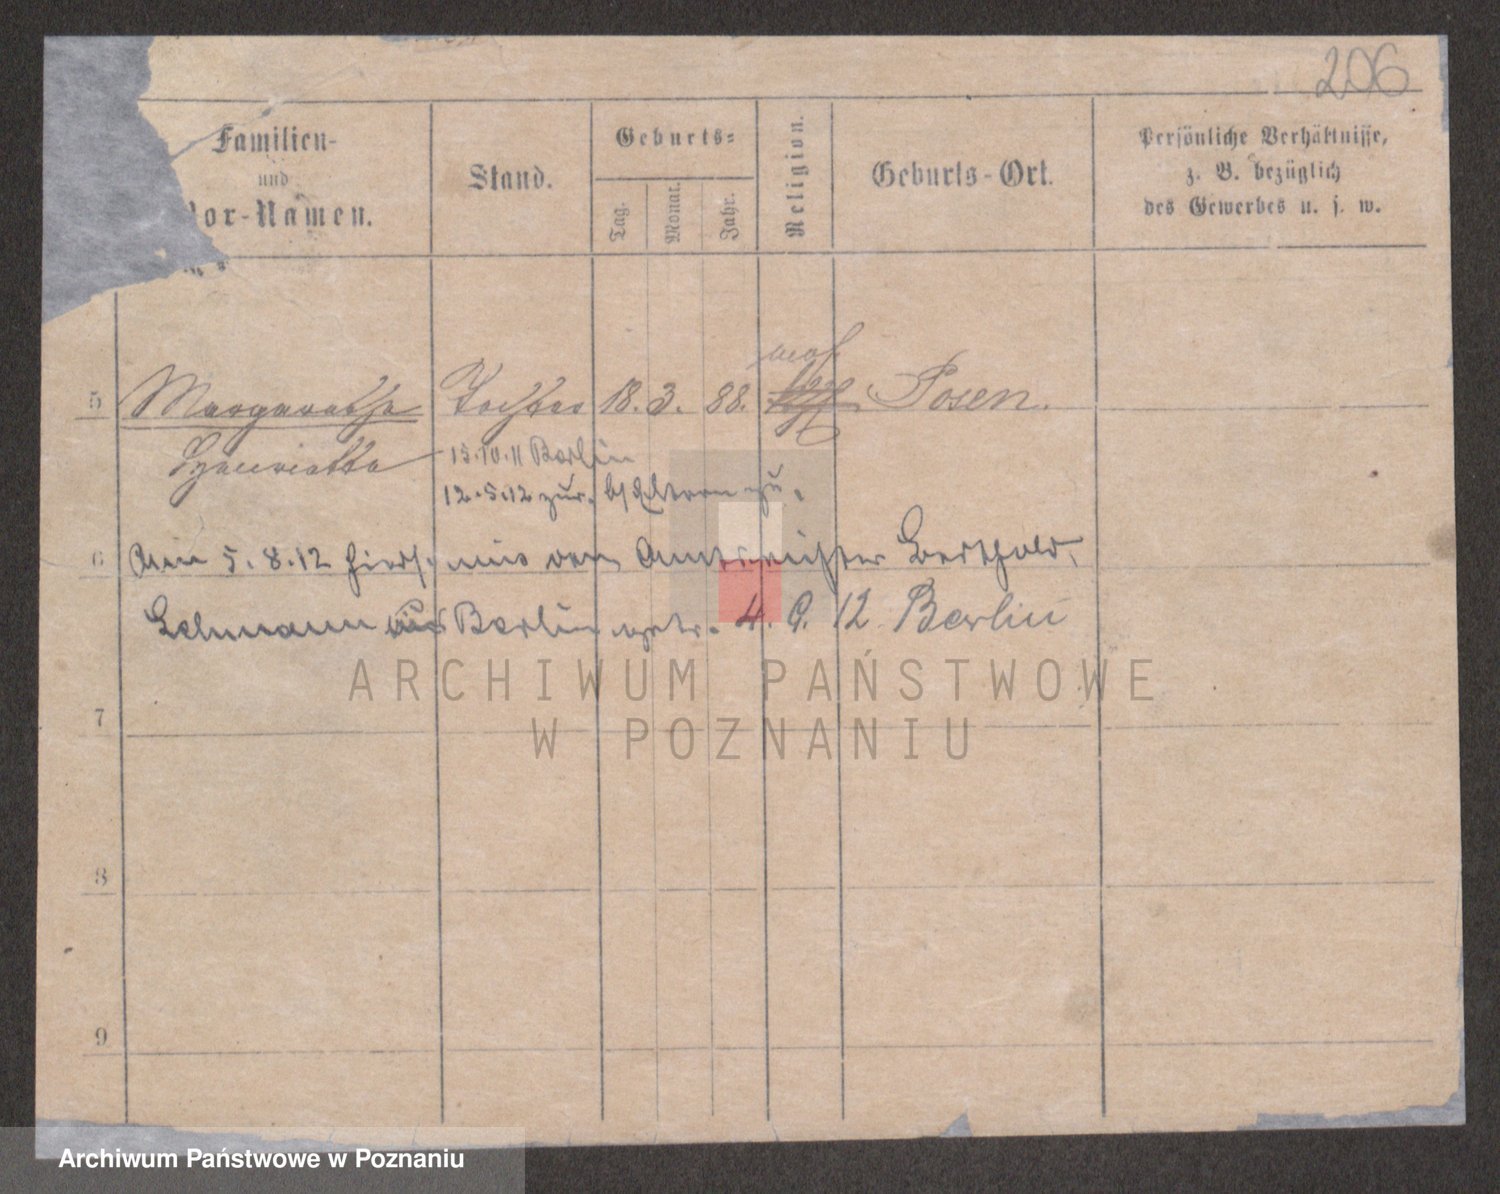 206
Familien-
und
Vor-Namen.
Stand.
Geburts-
Tag.
Monat.
Jahr.
Religion.
Geburts-Ort.
Persönliche Verhältnisse,
z. B. bezüglich
des Gewerbes u. s. w.
mos.
5 Margarethe Tochter 18. 3. 88. Posen.
Henriette 15.10.11 Berlin
12.5.12 zur. b/ Eltern zu.
6 Am 5.8.12 hiers. mit dem Amtsrichter Berthold
Lehmann aus Berlin getr. 4. 9. 12 Berlin
7
8
9
ARCHIWUM PAŃSTWOWE
W POZNANIU
Archiwum Państwowe w Poznaniu